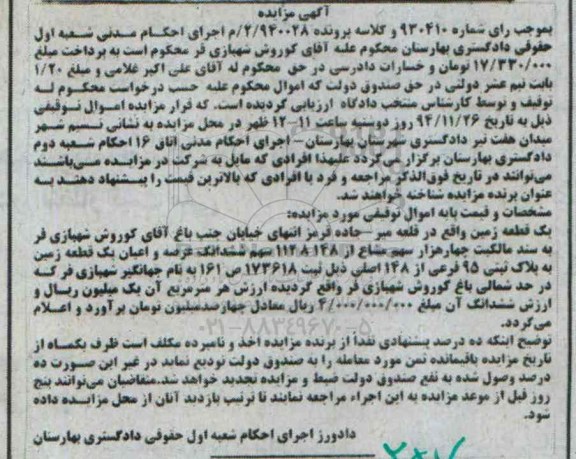 آگهی مزایده
بموجب رای شماره ۹۳۰۴۱۰ و کلاسه پرونده ۲/۹۴۰۰۲۸/م اجرای احکام مدنی شعبه اول
حقوقی دادگستری بهارستان محکوم علیه آقای کوروش شهبازی فر محکوم است به پرداخت مبلغ
۱۷/۳۳۰/۰۰۰ تومان و خسارات دادرسی در حق محکوم له آقای علی اکبر غلامی و مبلغ ۱/۲۰
بابت نیم عشر دولتی در حق صندوق دولت که اموال محکوم علیه حسب درخواست محکوم له
توقیف و توسط کارشناس منتخب دادگاه ارزیابی گردیده است. که قرار مزایده اموال توقیفی
ذیل به تاریخ ۹۴/۱۱/۲۶ روز دوشنبه ساعت ۱۱-۱۲ ظهر در محل مزایده به نشانی نسیم شهر
میدان هفت تیر دادگستری شهرستان بهارستان – اجرای احکام مدنی اتاق ۱۶ احکام شعبه دوم
دادگستری بهارستان برگزار می‌گردد علیهذا افرادی که مایل به شرکت در مزایده می‌باشند
می‌توانند در تاریخ فوق‌الذکر مراجعه و فرد یا افرادی که بالاترین قیمت را پیشنهاد دهند به
عنوان برنده مزایده شناخته خواهند شد.
مشخصات و قیمت پایه اموال توقیفی مورد مزایده:
یک قطعه زمین واقع در قلعه میر – جاده قرمز انتهای خیابان جنب باغ آقای کوروش شهبازی فر
به سند مالکیت چهارهزار سهم مشاع از سهم ششدانگ عرصه و اعیان یک قطعه زمین
به پلاک ثبتی ۹۵ فرعی از ۱۴۸ اصلی ذیل ثبت ۱۷۳۶۱۸ ص ۱۶۱ به نام جهانگیر شهبازی فر که
در حد شمالی باغ کوروش شهبازی فر واقع گردیده ارزش هر مترمربع آن یک میلیون ریال و
ارزش ششدانگ آن مبلغ ۴/۰۰۰/۰۰۰/۰۰۰ ریال معادل چهارصدمیلیون تومان برآورد و اعلام
می‌گردد.
توضیح اینکه ده درصد پیشنهادی نقداً از برنده مزایده اخذ و نامبرده مکلف است ظرف یکماه از
تاریخ مزایده باقیمانده ثمن مورد معامله را به صندوق دولت تودیع نماید در غیر این صورت ده
درصد وصول شده به نفع صندوق دولت ضبط و مزایده تجدید خواهد شد.متقاضیان می‌توانند پنج
روز قبل از موعد مزایده به این اجراء مراجعه نمایند تا ترتیب بازدید آنان از محل مزایده داده
شود.
دادورز اجرای احکام شعبه اول حقوقی دادگستری بهارستان
۰۲۱-۸۸۳۴۹۶۷۰-۵